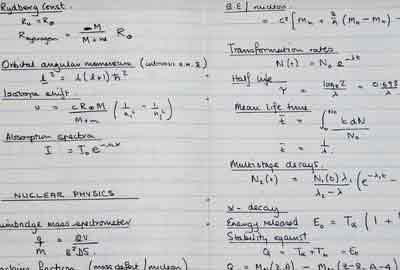 Rydberg Const.
R₀ = R∞
R_hydrogen = M / (M + m) R∞
Orbital angular momentum
l² = l(l+1)ħ²
Isotope shift.
υ = cR∞M / (M+m) (1/n₁² - 1/n₂²)
Absorption spectra
I = I₀e^-nαx
NUCLEAR PHYSICS
Bainbridge mass spectrometer
q/M = 2V / B²DS
fraction (mass defect / nucleon)
B.E / nucleon
= c² [Mn + Z/A (MH - Mn) -
Transformation rates
N(t) = N₀ e^-λt
Half life
τ = log_e 2 / λ = 0.693 / λ
Mean life time
t̄ = ∫₀^N₀ t dN / N₀
t̄ = 1/λ
Multistage decays.
N₂(t) = N₁(0) λ₁ / (λ₂ - λ₁) (e^-λ₁t -
α - decay
Energy released E₀ = Tα (1 +
Stability against
Q = Tα + Tb = E₀
Q = M (Z,A) - M (Z-2, A-4)